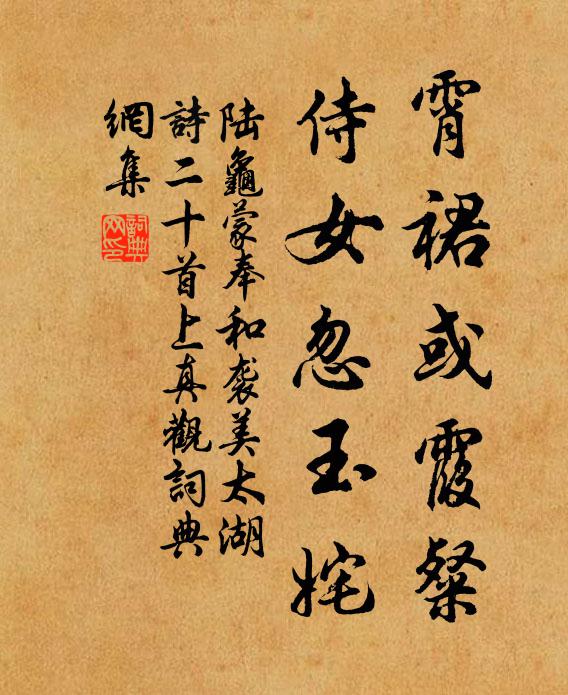 霄裙或霞粲
侍女忽玉姹
陆龜蒙奉和袭美太湖
詩二十首上真觀詞典
網集
詞典网印